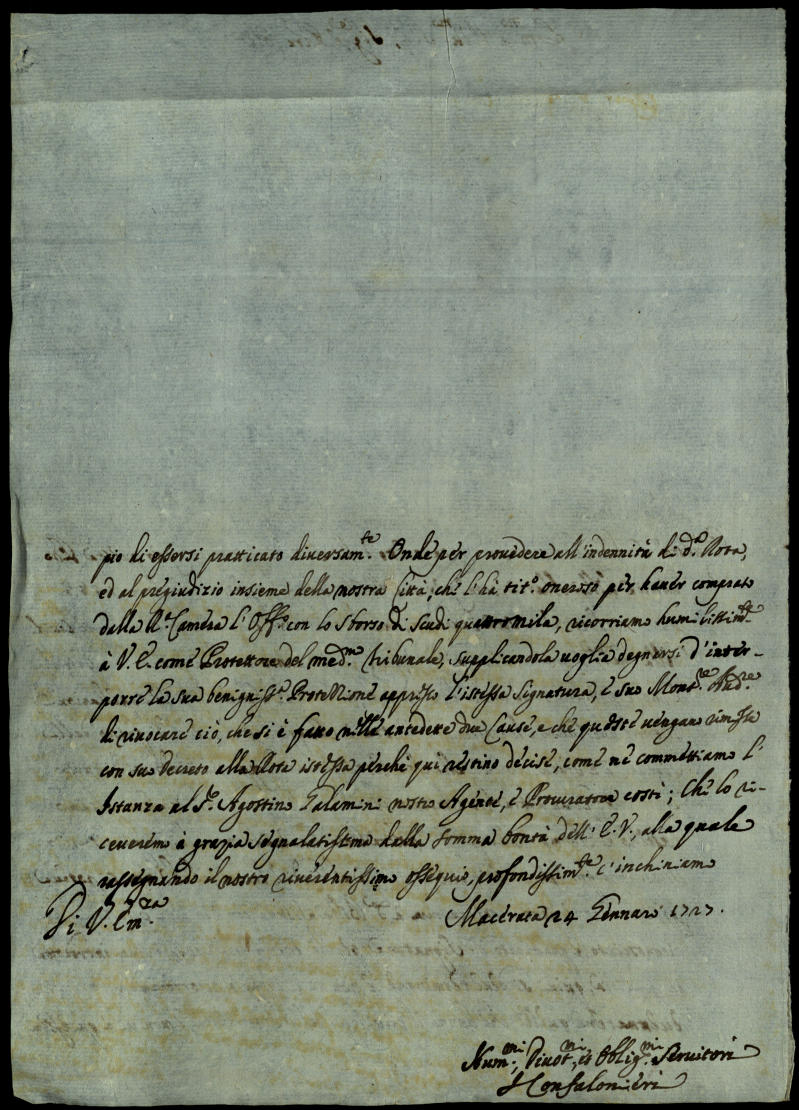 pio di essersi pratticato diversam.te Onde per provedere all'indennità di d.a Rota,
ed al pregiudizio insieme della nostra Città, che l'hà tit.o oneroso per haver comprato
dalla R. Camera l'Off.o con lo sborso di scudi quattromila, ricorriamo humilissim.te
à V. E. come Protettore del med.mo Tribunale, supplicandola voglia degnarsi d'inter-
porre la sua benigniss.a Protezzione appresso l'istessa Signatura, è suo Mons.re Aud.re
di rivocare ciò, che si è fatto nelle antedette due Cause, e che queste vengano rimesse
con suo decreto alla Rota istessa perche qui restino decise, come nè commettiamo l'
Istanza al S.r Agostino Galamini nostro Agente, è Procuratore costì; Che lo ri-
ceveremo à grazia segnalatissima dalla somma bontà dell'E. V., alla quale
rassegnando il nostro riverentissimo ossequio, profondissim.te c'inchiniamo
Di V. Em.za
Macerata 24 Gennaro 1727.
Hum.mi, Divot.mi, et Oblig.mi Servitori
I Confalonieri